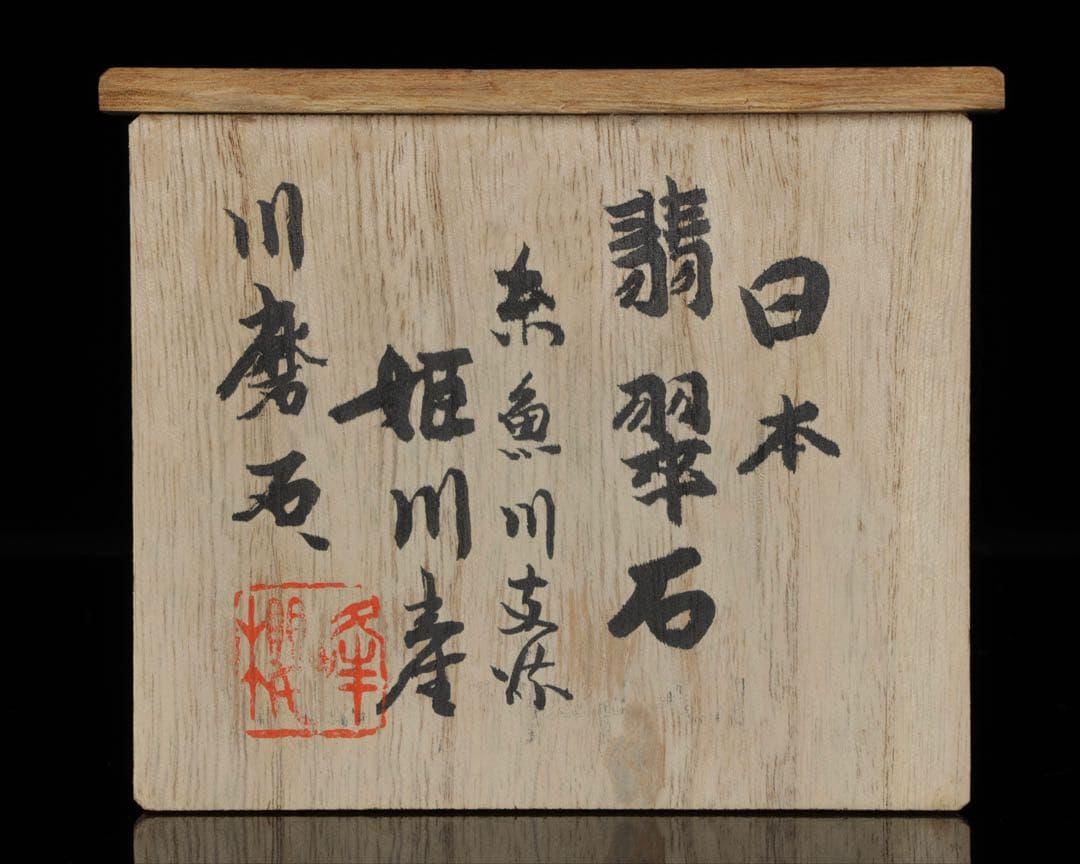 日本
翡翠石
糸魚川支流
姫川産
川磨石